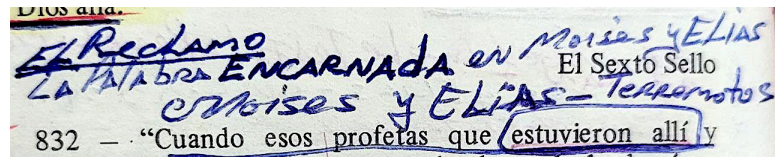 Dios allá.
EL Reclamo
LA PALAbRA ENCARNADA en Moises y ELIAS
El Sexto Sello
Moises y ELÍAS - Terremotos
832 – “Cuando esos profetas que estuvieron allí y